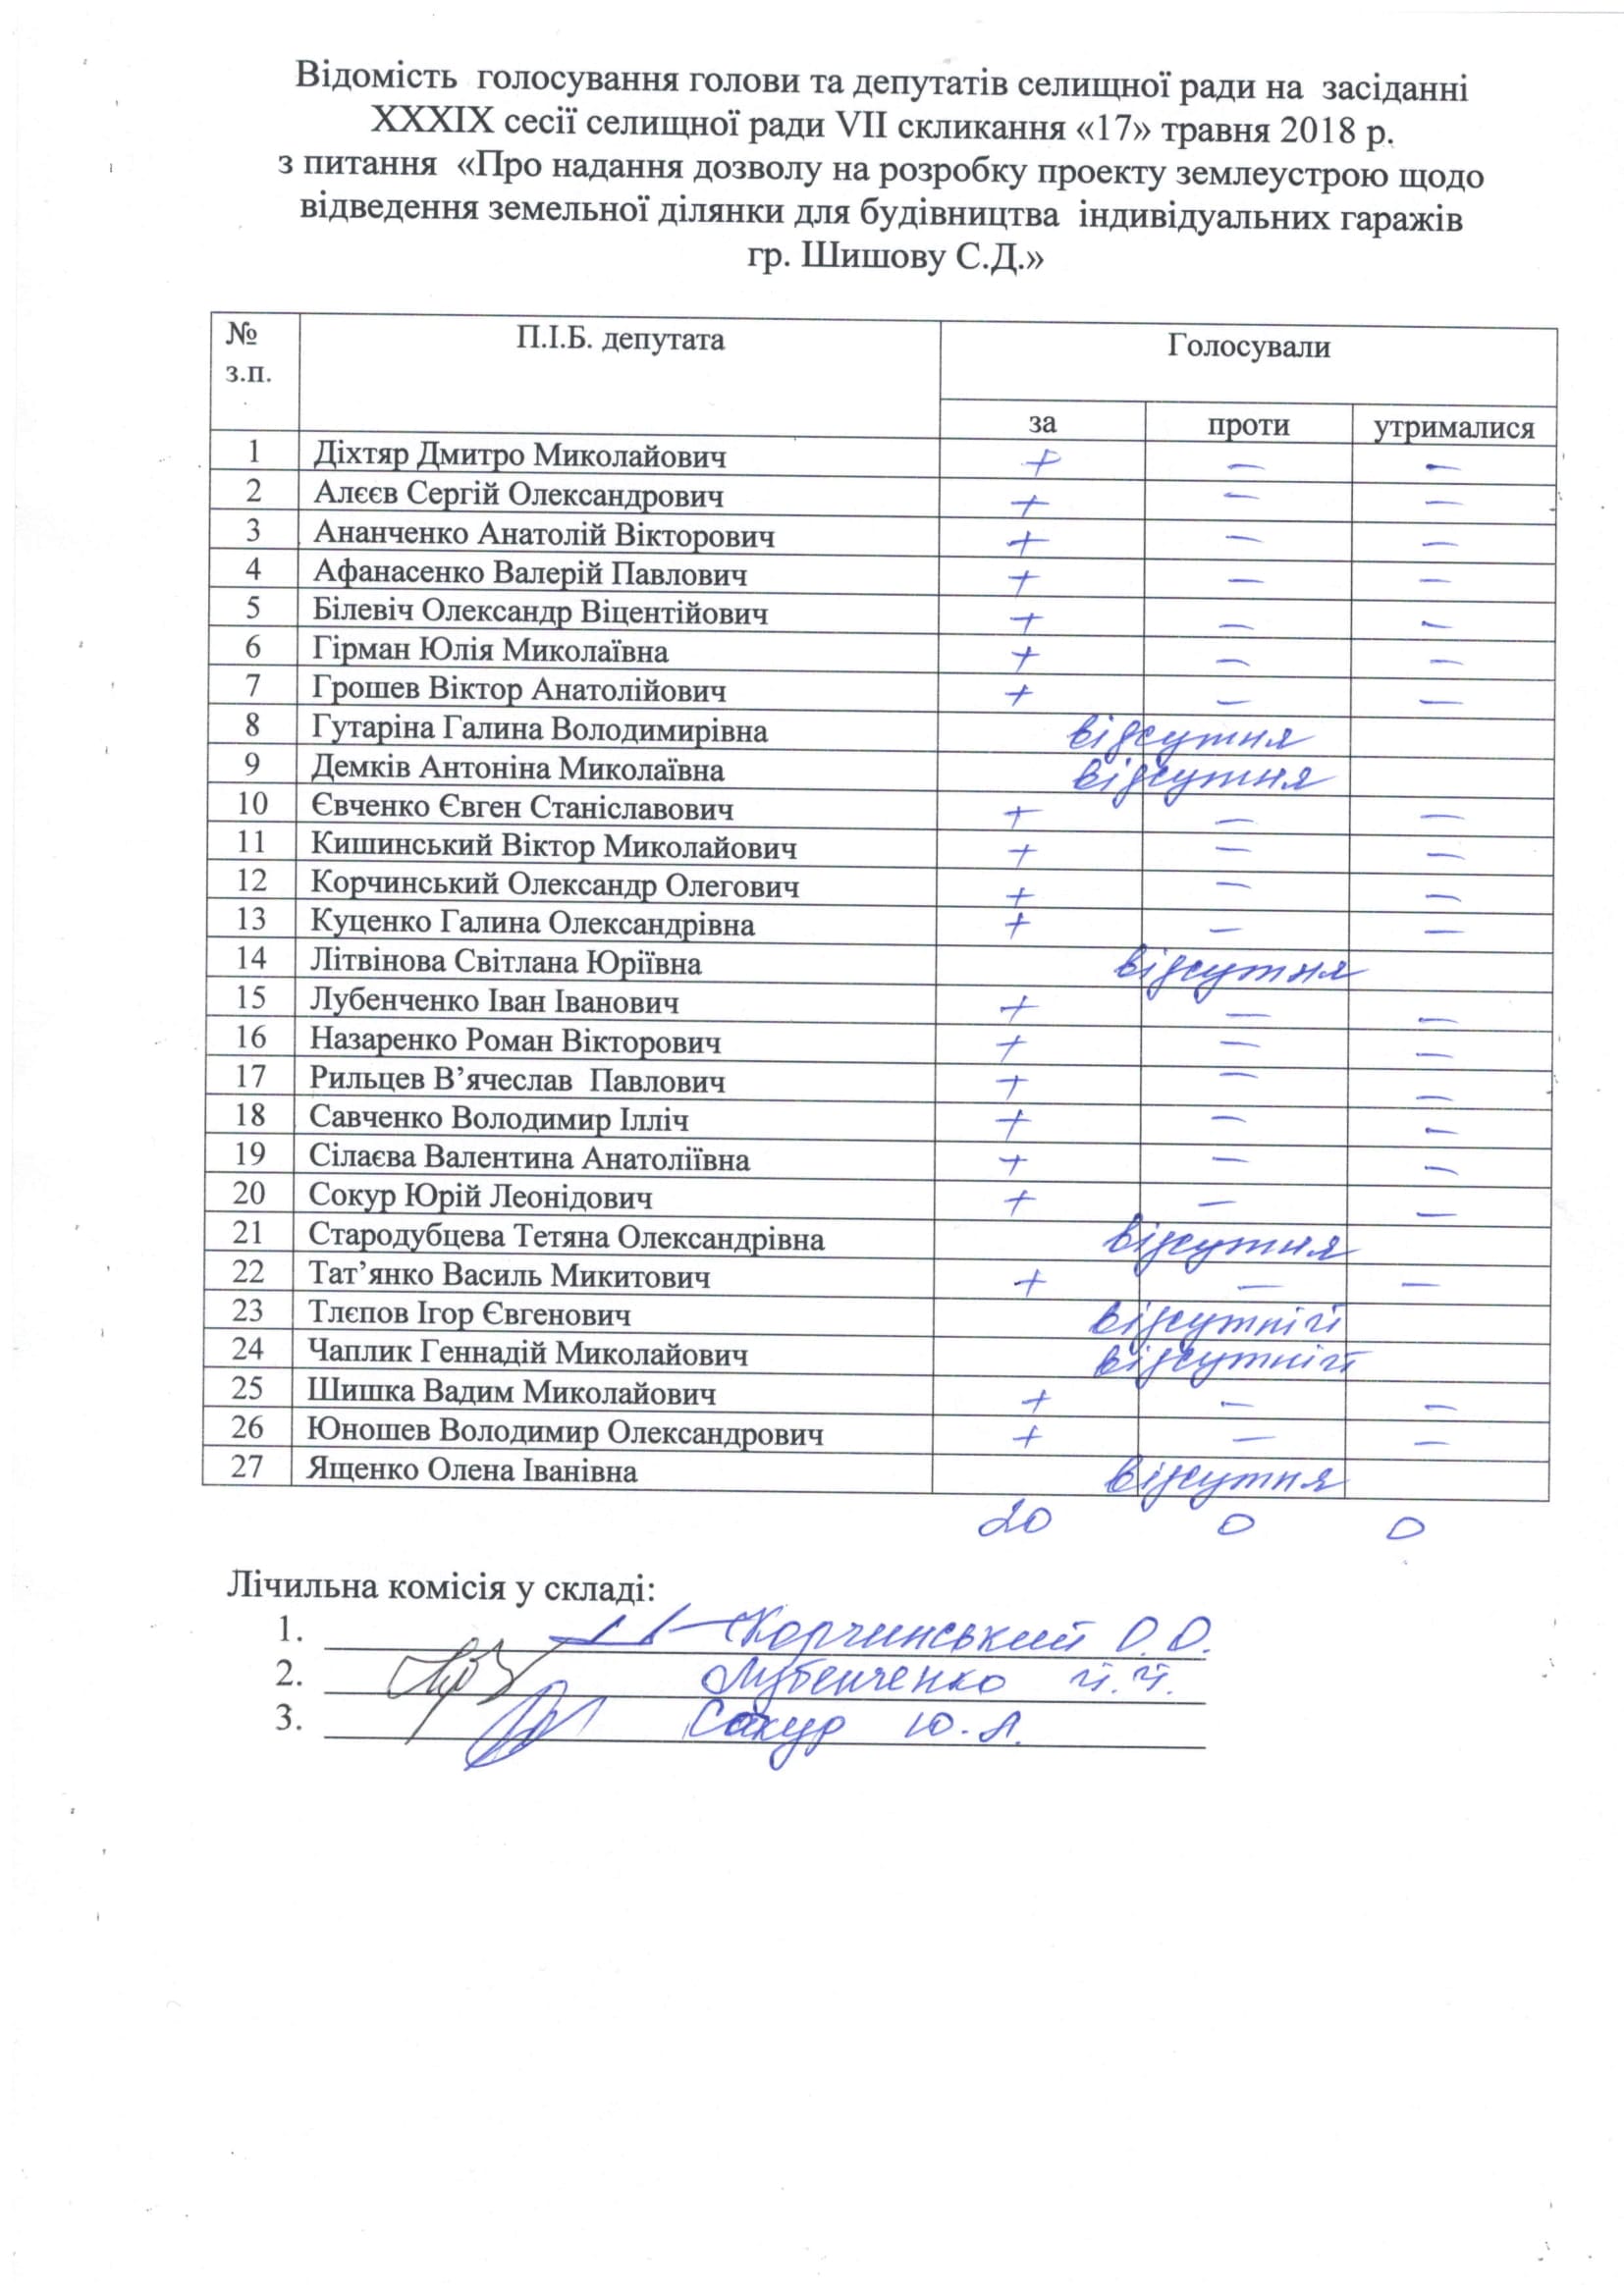 Відомість голосування голови та депутатів селищної ради на засіданні
XXXIX сесії селищної ради VII скликання «17» травня 2018 р.
з питання «Про надання дозволу на розробку проекту землеустрою щодо
відведення земельної ділянки для будівництва індивідуальних гаражів
гр. Шишову С.Д.»
№ з.п. П.І.Б. депутата Голосували
за проти утрималися
1 Діхтяр Дмитро Миколайович + – –
2 Алєєв Сергій Олександрович + – –
3 Ананченко Анатолій Вікторович + – –
4 Афанасенко Валерій Павлович + – –
5 Білевіч Олександр Віцентійович + – –
6 Гірман Юлія Миколаївна + – –
7 Грошев Віктор Анатолійович + – –
8 Гутаріна Галина Володимирівна відсутня
9 Демків Антоніна Миколаївна відсутня
10 Євченко Євген Станіславович + – –
11 Кишинський Віктор Миколайович + – –
12 Корчинський Олександр Олегович + – –
13 Куценко Галина Олександрівна + – –
14 Літвінова Світлана Юріївна відсутня
15 Лубенченко Іван Іванович + – –
16 Назаренко Роман Вікторович + – –
17 Рильцев В’ячеслав Павлович + – –
18 Савченко Володимир Ілліч + – –
19 Сілаєва Валентина Анатоліївна + – –
20 Сокур Юрій Леонідович + – –
21 Стародубцева Тетяна Олександрівна відсутня
22 Тат’янко Василь Микитович + – –
23 Тлєпов Ігор Євгенович відсутній
24 Чаплик Геннадій Миколайович відсутній
25 Шишка Вадим Миколайович + – –
26 Юношев Володимир Олександрович + – –
27 Ященко Олена Іванівна відсутня
20 0 0
Лічильна комісія у складі:
1. Корчинський О.О.
2. Лубенченко І.І.
3. Сокур Ю.Л.